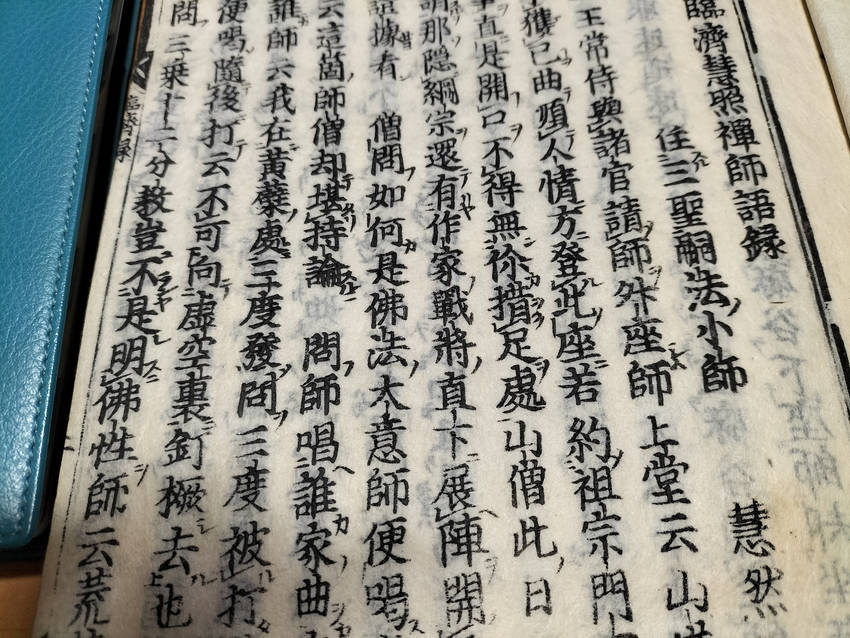 臨濟慧照禪師語錄
住三聖嗣法小師 慧然
王常侍與諸官請師舛座師上堂云山
獲已曲順人情方登此座若約祖宗門
直是開口不得無你措足處山僧此日
請那隱綱宗還有作家戰將直下展陣開
證據看 僧問如何是佛法大意師便喝
云這箇師僧却堪持論 問師唱誰家曲
誰師云我在黃蘗處三度發問三度被打
便喝隨後打云不可向虛空裏釘橛去也
問三乘十二分教豈不是明佛性師云荒
臨濟錄